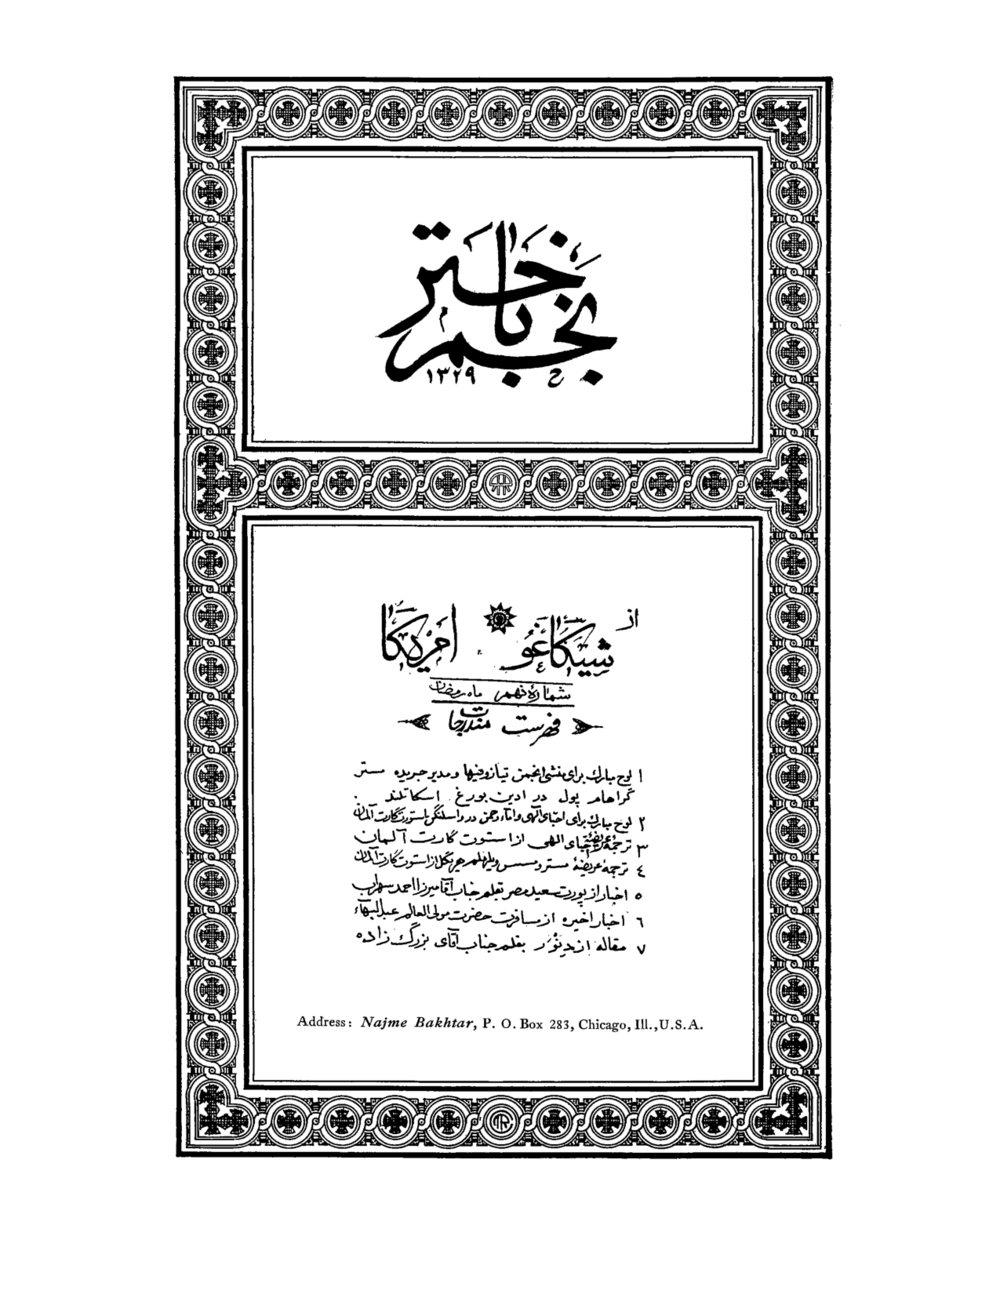 نجم باختر
١٣٢٩
از
شیکاغو امریکا
شمارهٔ نهم ماه رمضان
فهرست مندرجات
١ لوح مبارك برای منشی انجمن تیازوفیها و مدیر جریده مستر
گراهام پول در ادین بورغ اسکاتلند
٢ لوح مبارك برای احبای الهی و اماء رحمن در واسلنگی باستوتکارت آلمان
٣ ترجمهٔ عریضهٔ احبای الهی از استوت کارت آلمان
٤ ترجمه عریضهٔ مستر و مسس ویلهلم هریگل از استوت کارت آلمان
٥ اخبار از پورت سعید مصر بقلم جناب آقا میرزا احمد سهراب
٦ اخبار اخیره از مسافرت حضرت مولی العالم عبدالبهاء
٧ مقاله از دینور بقلم جناب آقای بزرگ زاده
Address: Najme Bakhtar, P. O. Box 283, Chicago, Ill., U.S.A.